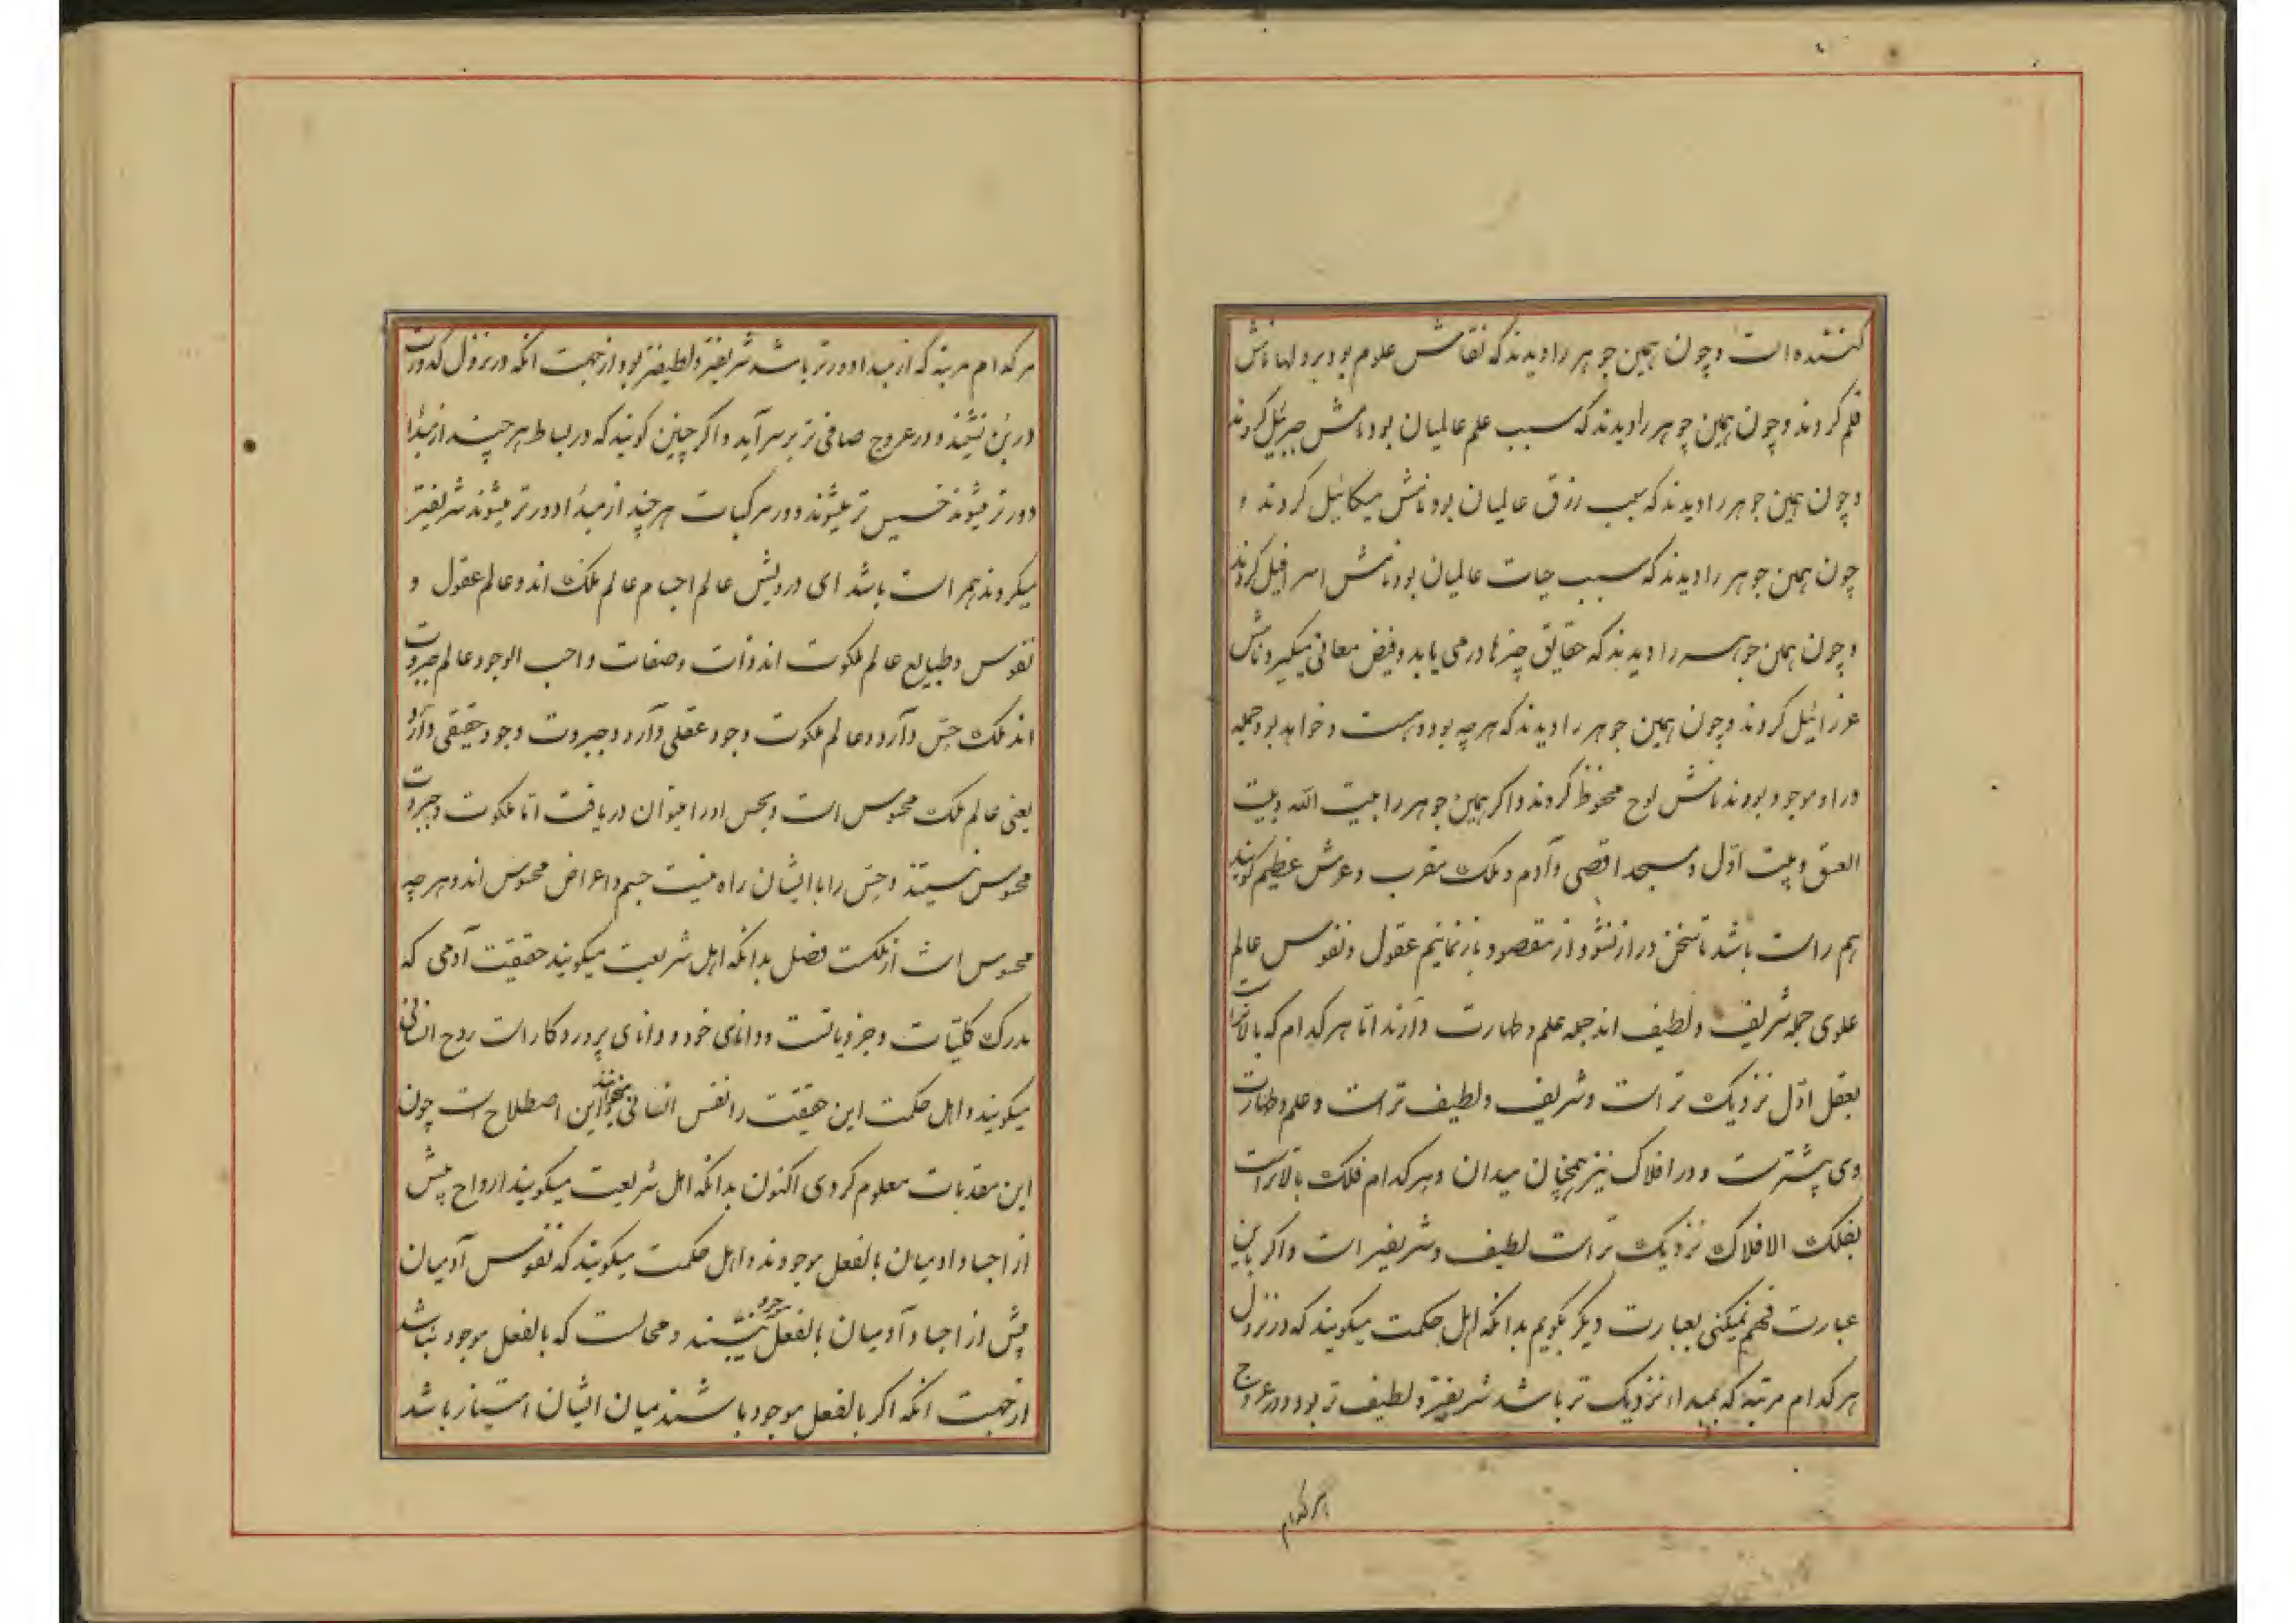 کننده است و چون همین جوهر را دیدند که نقاش علوم بود بر دلها نامش
قلم کردند و چون همین جوهر را دیدند که سبب علم عالمیان بود نامش جبرئیل کردند
و چون همین جوهر را دیدند که سبب رزق عالمیان بود نامش میکائیل کردند و
چون همین جوهر را دیدند که سبب حیات عالمیان بود نامش اسرافیل کردند
و چون همین جوهر را دیدند که حقایق چیزها درمی یابد و فیض معانی میگیرد نامش
عزرائیل کردند و چون همین جوهر را دیدند که هر چه بود و هست و خواهد بود جمله
در او موجود بودند نامش لوح محفوظ کردند و اگر همین جوهر را بیت الله و بیت
العتیق و بیت اول و مسجد اقصی و آدم و ملک مقرب و عرش عظیم گویند
هم راست باشد تا سخن دراز نشود و از مقصود باز نمانیم عقول و نفوس عالم
علوی جمله شریف و لطیف اند جمله علم و طهارت دارند اما هر کدام که بالاتر است
بعقل اول نزدیک تر است و شریف و لطیف تر است و علم و طهارت
وی بیشتر است و در افلاک نیز همچنان میدان و هر کدام فلک بالاتر است
بفلک الافلاک نزدیک تر است لطیف و شریفتر است و اگر باین
عبارت فهم نمیکنی بعبارت دیگر بگویم بدانکه اهل حکمت میگویند که در نزول
هر کدام مرتبه که بمبداء نزدیک تر باشد شریفتر و لطیف تر بود و در عروج
هر کدام
هر کدام مرتبه که از مبداء دورتر باشد شریفتر و لطیفتر بود از جهت آنکه در نزول کدورت
در بن نشیند و در عروج صافی تر بر سر آید و اگر چنین گویند که در بسائط هر چند از مبدأ
دورتر میشوند خسیس تر میشوند و در مرکبات هر چند از مبدأ دورتر میشوند شریفتر
میگردند هم راست باشد ای درویش عالم اجسام عالم ملک اند و عالم عقول و
نفوس و طبایع عالم ملکوت اند و ذات و صفات واجب الوجود عالم جبروت
اند ملک حس دارد و عالم ملکوت وجود عقلی دارد و جبروت وجود حقیقی دارد
یعنی عالم ملک محسوس است و بحس او را میتوان دریافت اما ملکوت و جبروت
محسوس نیستند و حس را با ایشان راه نیست جسم و اعراض محسوس اند و هر چه
محسوس است از ملکست فصل بدانکه اهل شریعت میگویند حقیقت آدمی که
مدرک کلیات و جزویاتست و دانای خود و دانای پروردگار است روح انسانی
میگویند و اهل حکمت این حقیقت را نفس انسانی میخوانند این اصطلاح است چون
این مقدمات معلوم کردی اکنون بدانکه اهل شریعت میگویند ارواح پیش
از اجساد ادمیان بالفعل موجودند و اهل حکمت میگویند که نفوس آدمیان
پیش از اجساد آدمیان بالفعل موجود نیستند و محالست که بالفعل موجود نباشد
از جهت آنکه اگر بالفعل موجود باشند میان ایشان امتیاز باشد